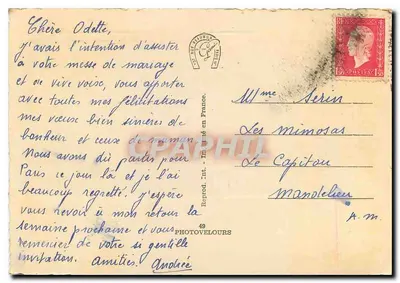 Chère Odette,
J'avais l'intention d'assister
à votre messe de mariage
et de vive voix, vous apporter
avec toutes mes félicitations
mes vœux bien sincères de
bonheur et ceux de maman
Nous avons dû partir pour
Paris ce jour là et je l'ai
beaucoup regretté. J'espère
vous revoir à mon retour la
semaine prochaine et vous
remercier de votre si gentille
invitation. Amitiés. Andrée
Reprod. Int. Imprimé en France.
49
PHOTOVELOURS
Mme Serin
Les Mimosas
Le Capitou
Mandelieu
A.M
CPAPHIL